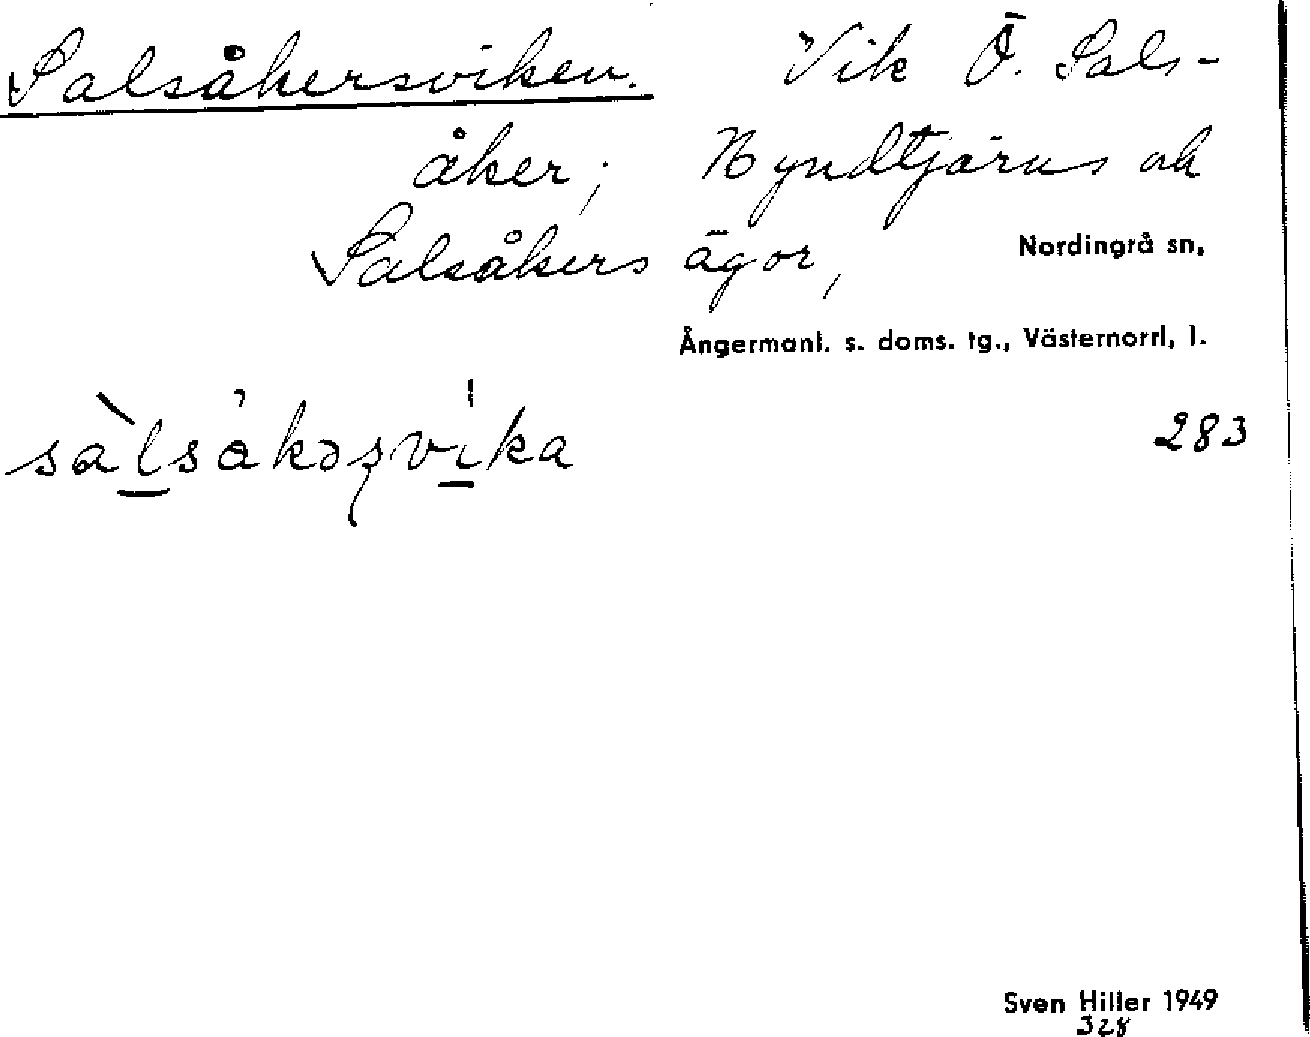 Salsåkersviken. Vik Ö. Sals-
åker; Nyndtjärns och
Salsåkers ägor,
Nordingrå sn,
Ångermanl. s. doms. tg., Västernorrl, l.
283
Sven Hiller 1949
328